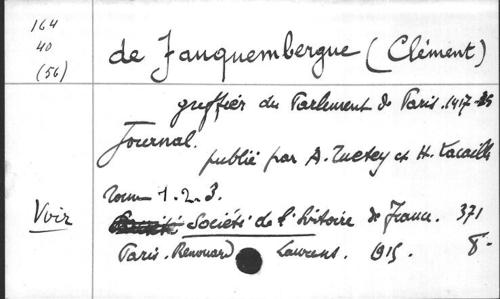 164
40
(56)
de Fauquembergue (Clément)
greffier du Parlement de Paris. 1417-35
Journal.
publié par A. Tuetey et H. Lacaille
Tome 1.2.3.
Voir
Société de l'histoire de France. 371
Paris. Renouard Laurens. 1915. 8°